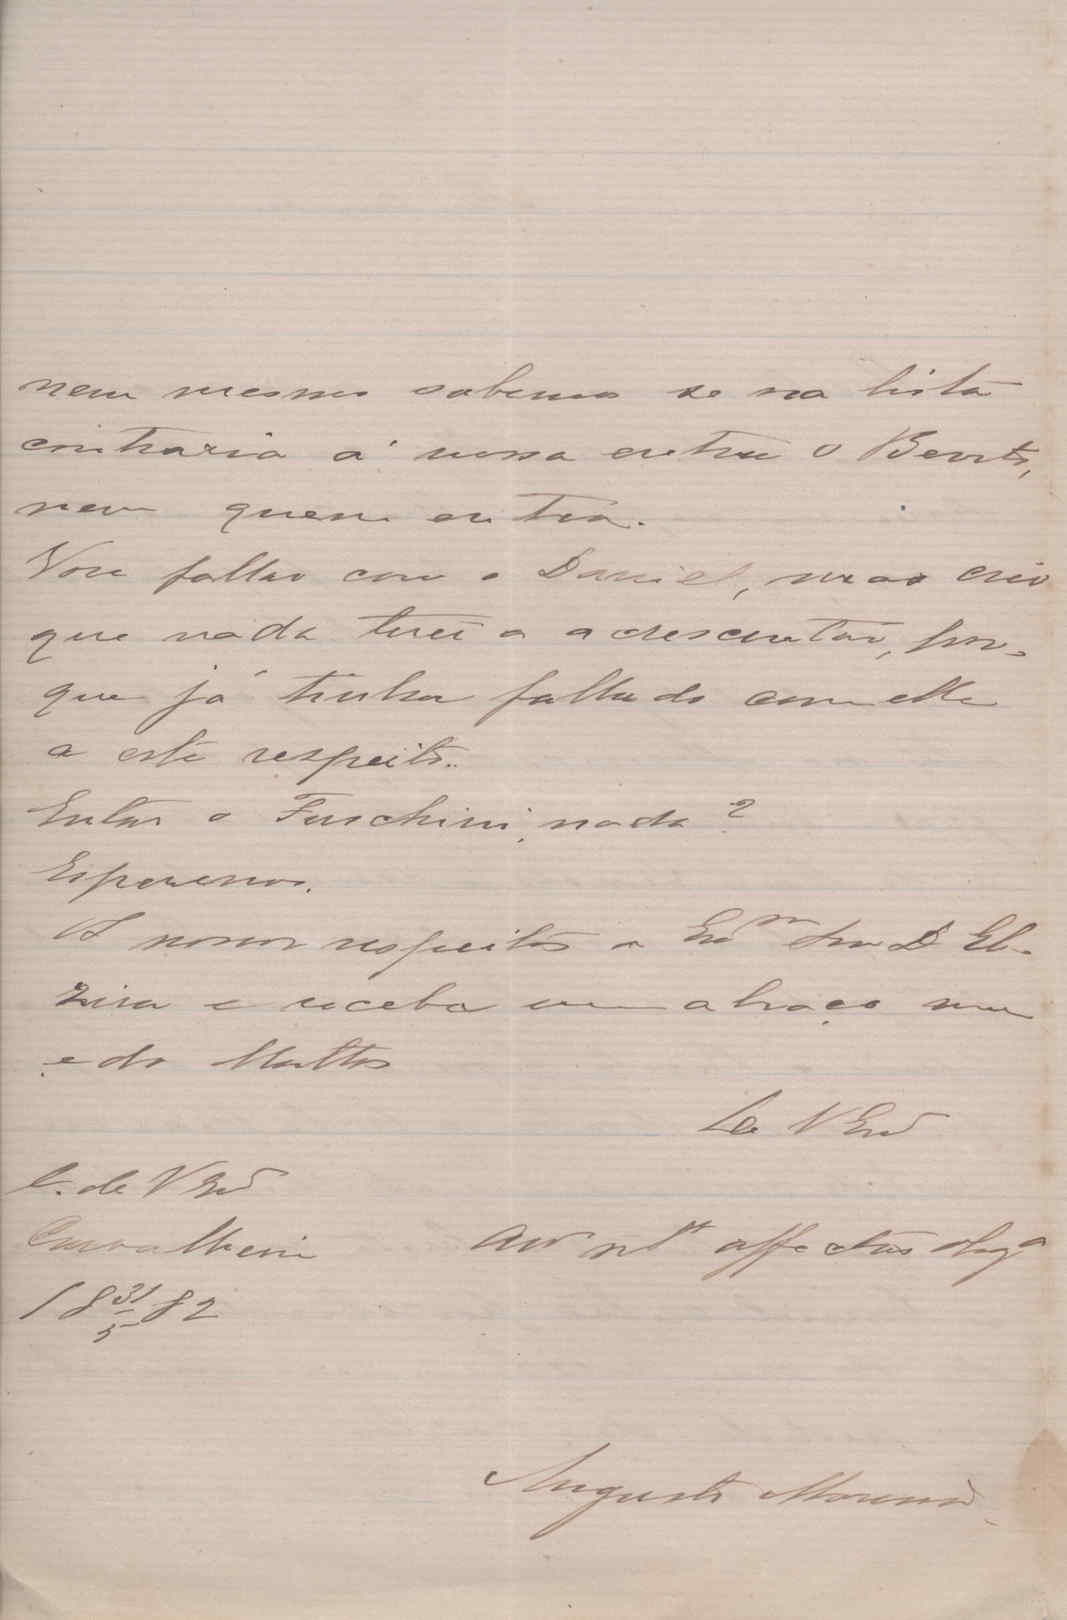 nem mesmo sabemos se na lista
contraria á nossa entra o Bento,
nem quem entra.
Vou fallar com o Daniel, mas creio
que nada terei a acrescentar, por-
que já tinha fallado com elle
a este respeito.
Então o Fuschini, nada?
Esperemos.
Os nossos respeitos a Exmª Snra D. El-
zira e receba um abraço meu
e do Mattos
De V Exª
C. de V Exª
Carvalheira
Amº mtº affectuoso obrgº
18 31/5 82
Augusto Moreno